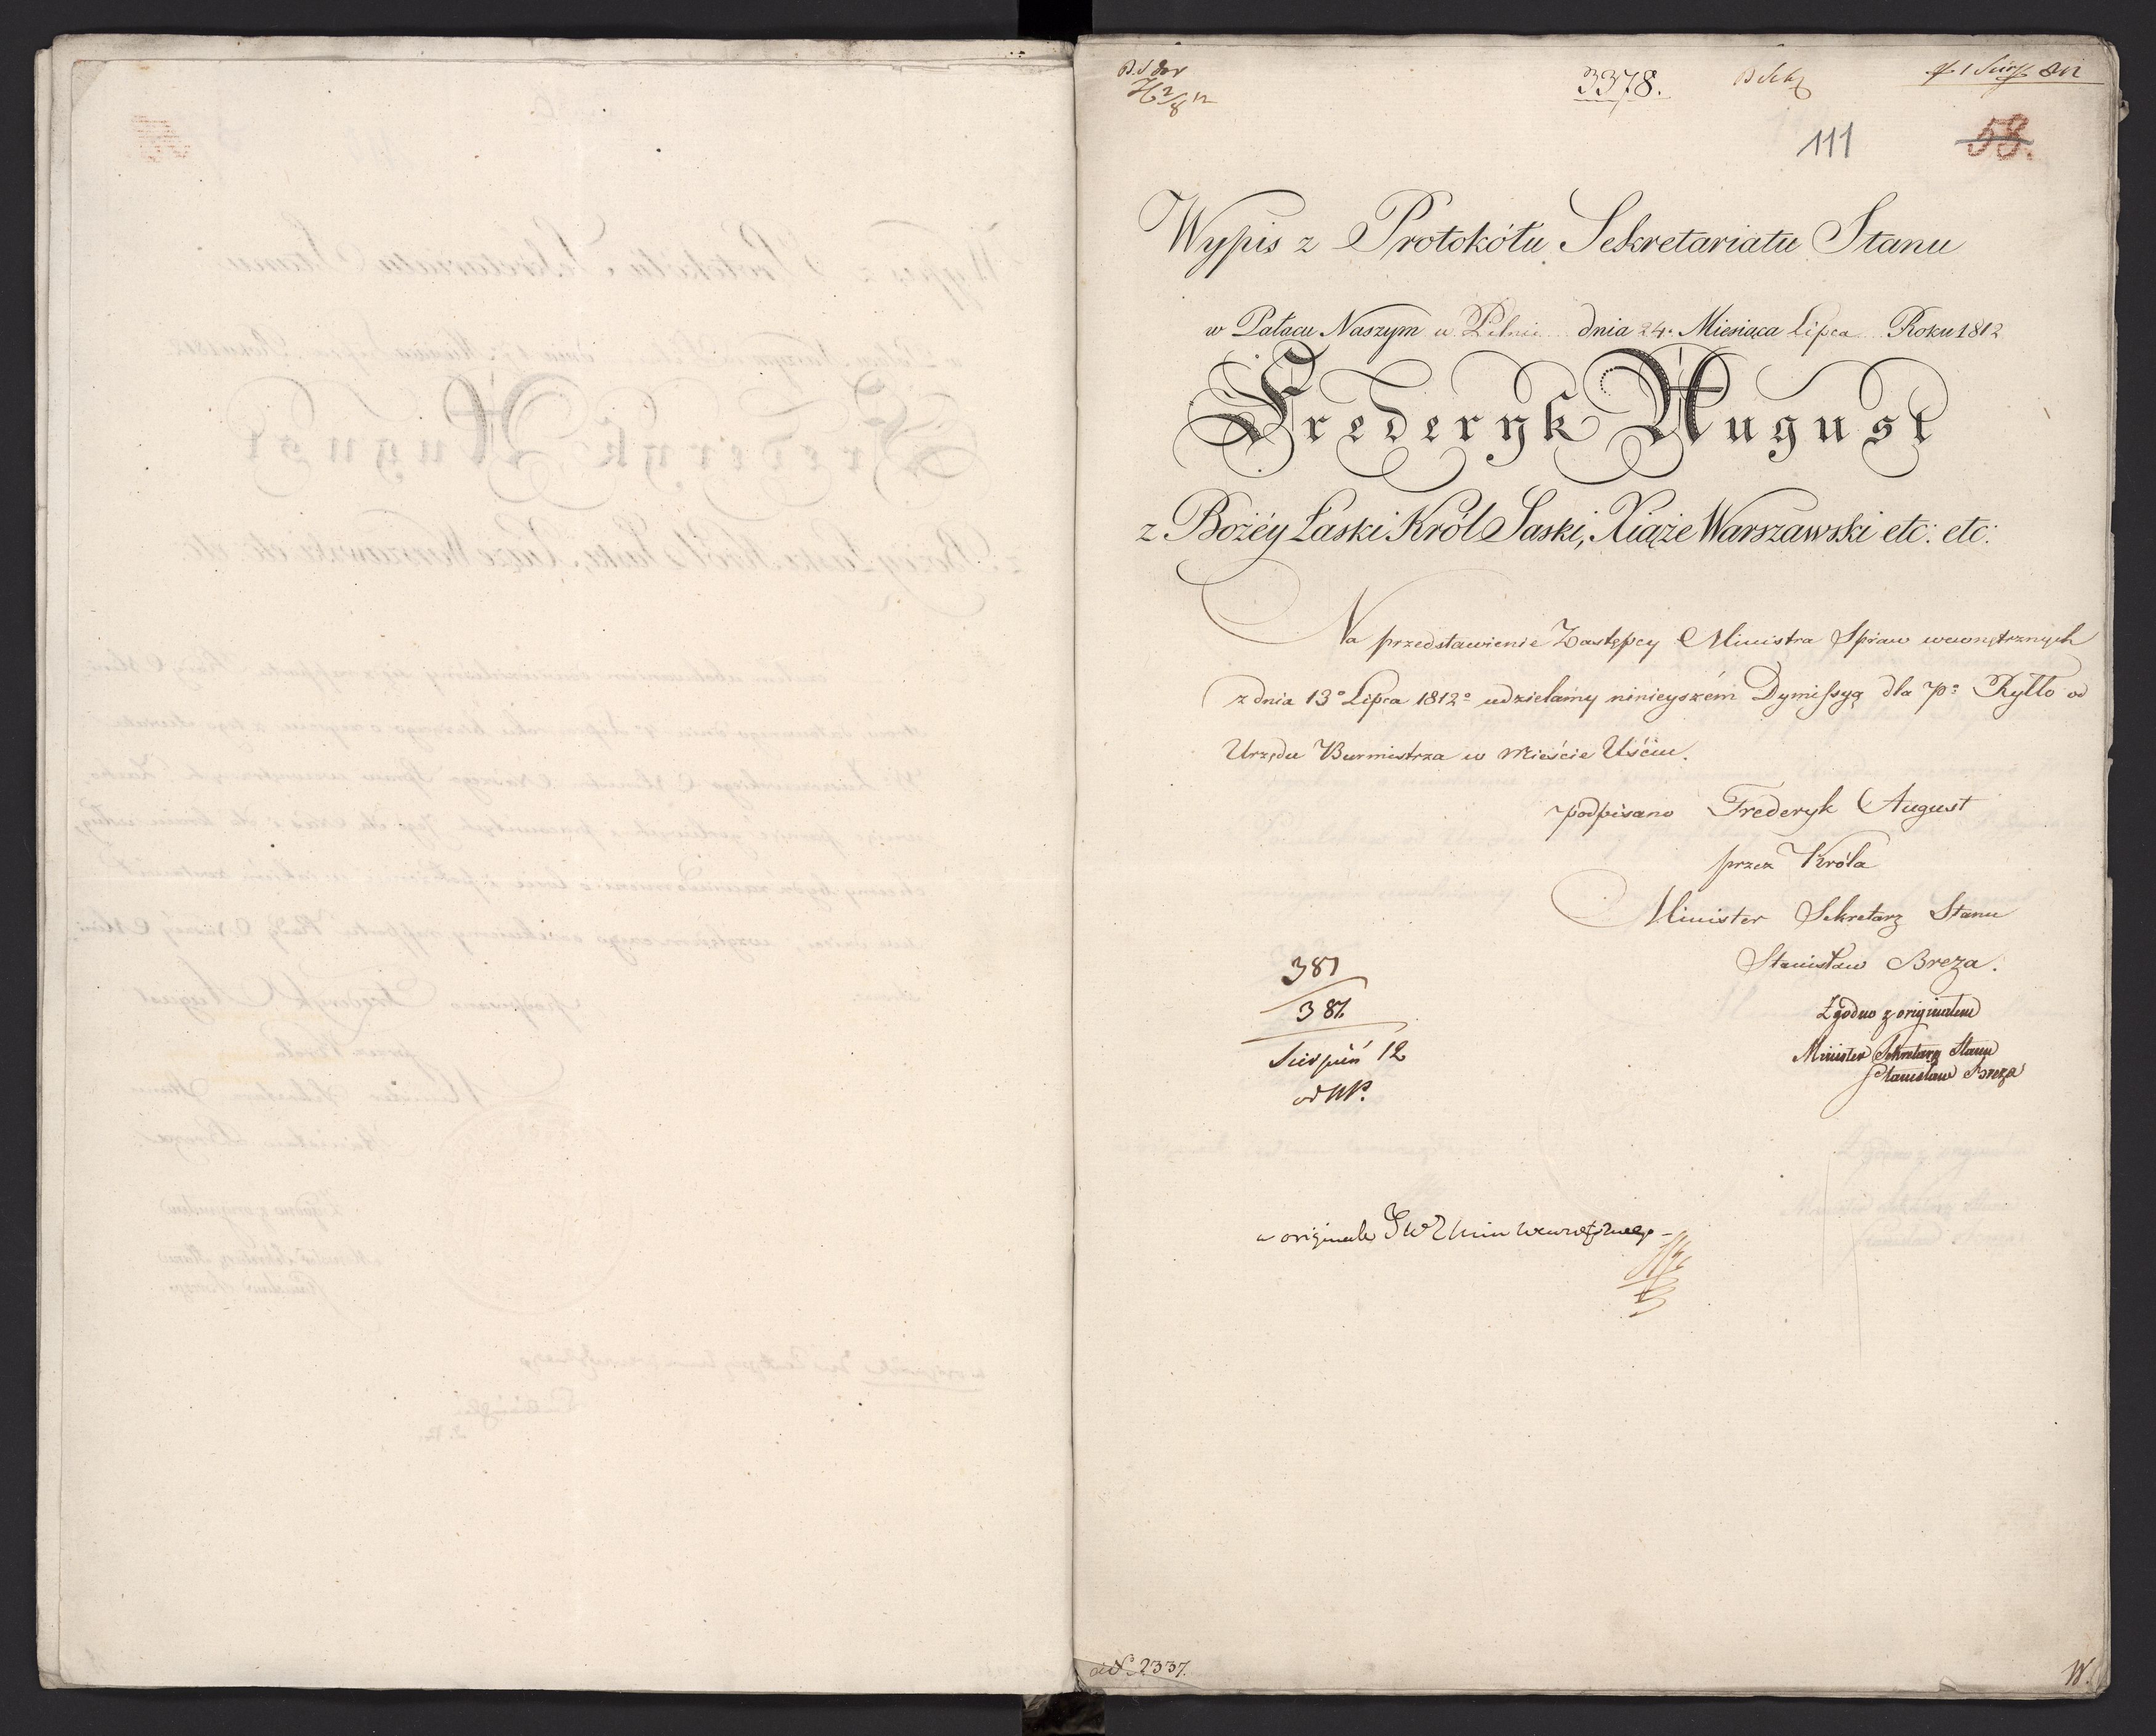 3378.
111
58.
Wypis z Protokółu Sekretariatu Stanu
w Pałacu Naszym w Pilnic dnia 24. Miesiąca Lipca Roku 1812
Frederyk August
z Bożéy Łaski Król Saski, Xiąże Warszawski etc: etc:
Na przedstawienie Zastępcy Ministra Spraw wewnętrznych
z dnia 13º Lipca 1812º udzielamy ninieyszém Dymissyą dla Pº Ryłło od
Urzędu Burmistrza w Mieście Uściu.
podpisano Frederyk August
przez Króla
Minister Sekretarz Stanu
Stanisław Breza.
381
381.
Sierpień 12
Zgodno z originałem
Minister Sekretarz Stanu
Stanisław Breza
w originale
N. 2337.
W.